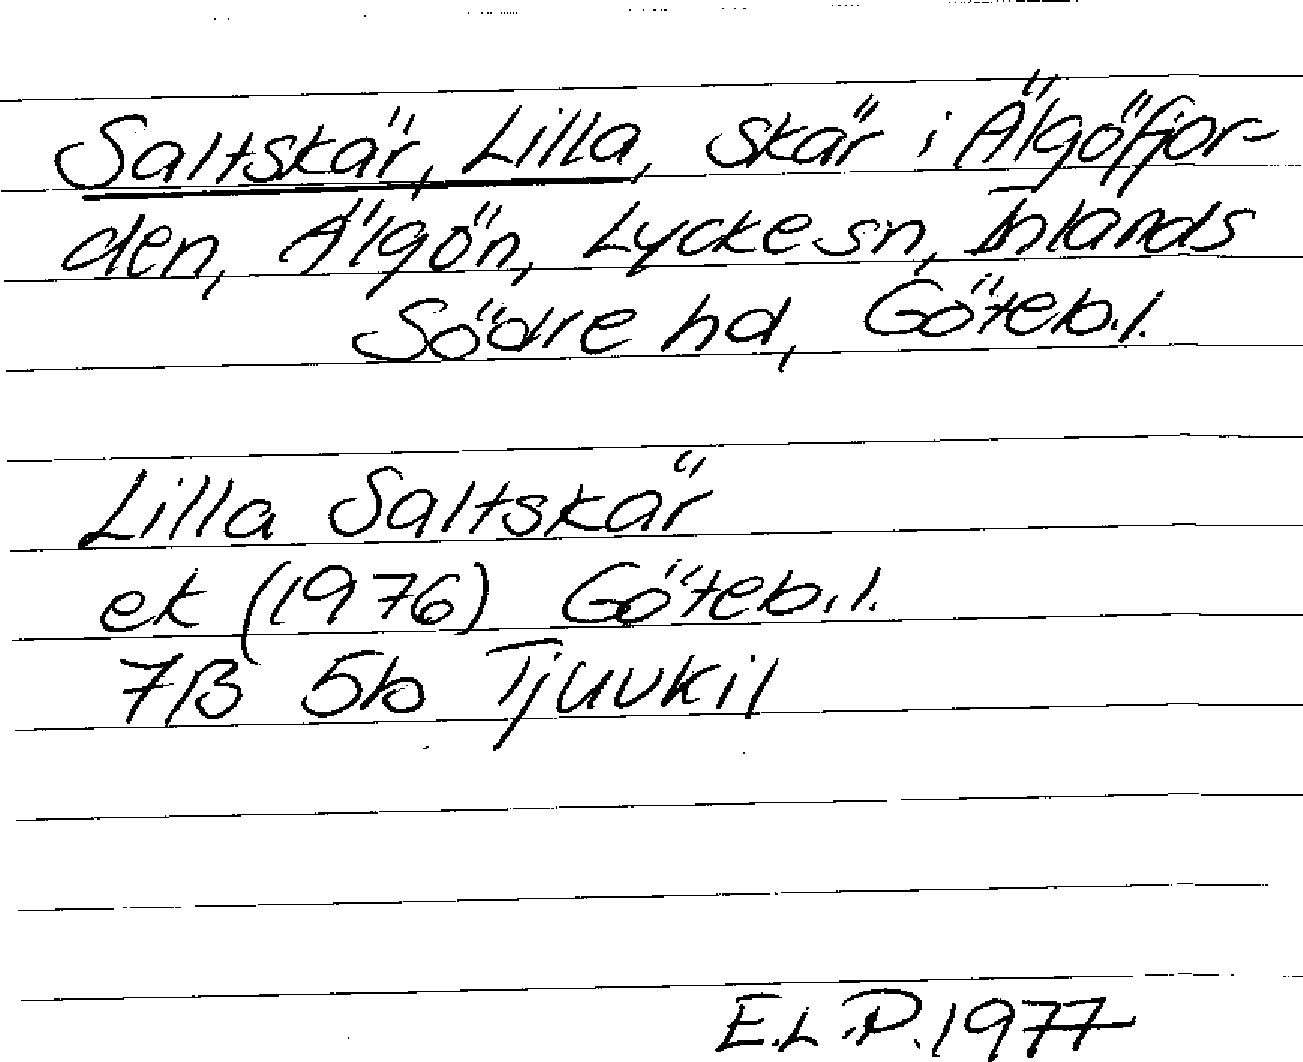 Saltskär, Lilla, skär i Älgöfjor-
den, Älgön, Lycke sn, Inlands
Södre hd, Göteb.l.
Lilla Saltskär
ek (1976) Göteb.l.
7B 5b Tjuvkil
E.L.P. 1977